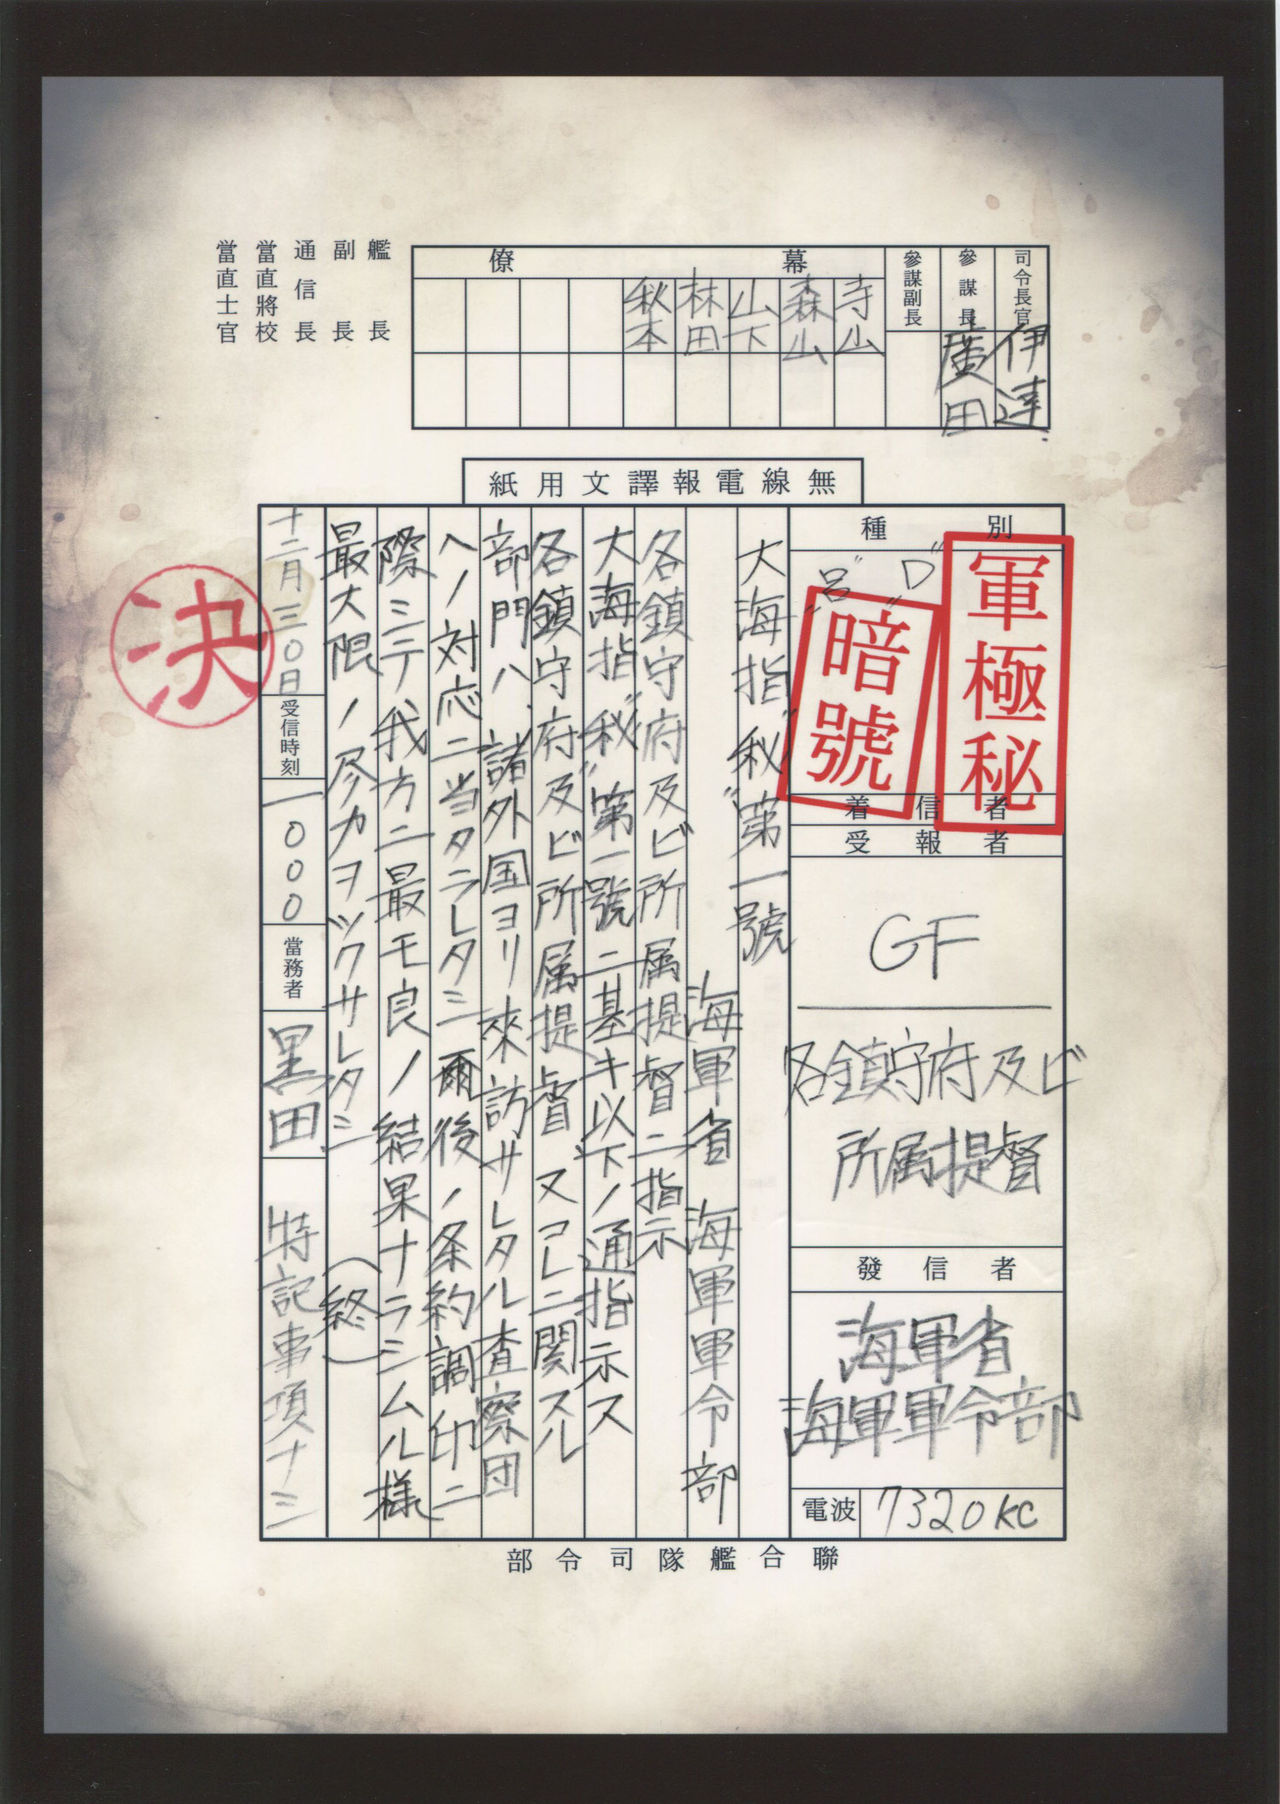 司令長官
伊達
參謀長
廣田
參謀副長
幕僚
寺山
森山
山下
林田
秋本
艦長
副長
通信長
當直將校
當直士官
無線電報譯文用紙
種別
"呂" "D"
軍極秘
暗號
着信者
受報者
GF
各鎮守府及ビ
所属提督
發信者
海軍省
海軍軍令部
電波
7320KC
大海指"秘"第一號
海軍省 海軍軍令部
各鎮守府及ビ所属提督ニ指示
大海指"秘"第一號ニ基キ以下ノ通指示ス
各鎮守府及ビ所属提督、又コレニ関スル
部門ハ、諸外国ヨリ來訪サレタル査察団
ヘノ対応ニ当タラレタシ 爾後ノ条約調印ニ
際シテ我方ニ最モ良ノ結果ナラシムル様
最大限ノ尽力ヲツクサレタシ
(終)
十二月三〇日
受信時刻
一〇〇〇
當務者
黒田
特記事項ナシ
決
聯合艦隊司令部